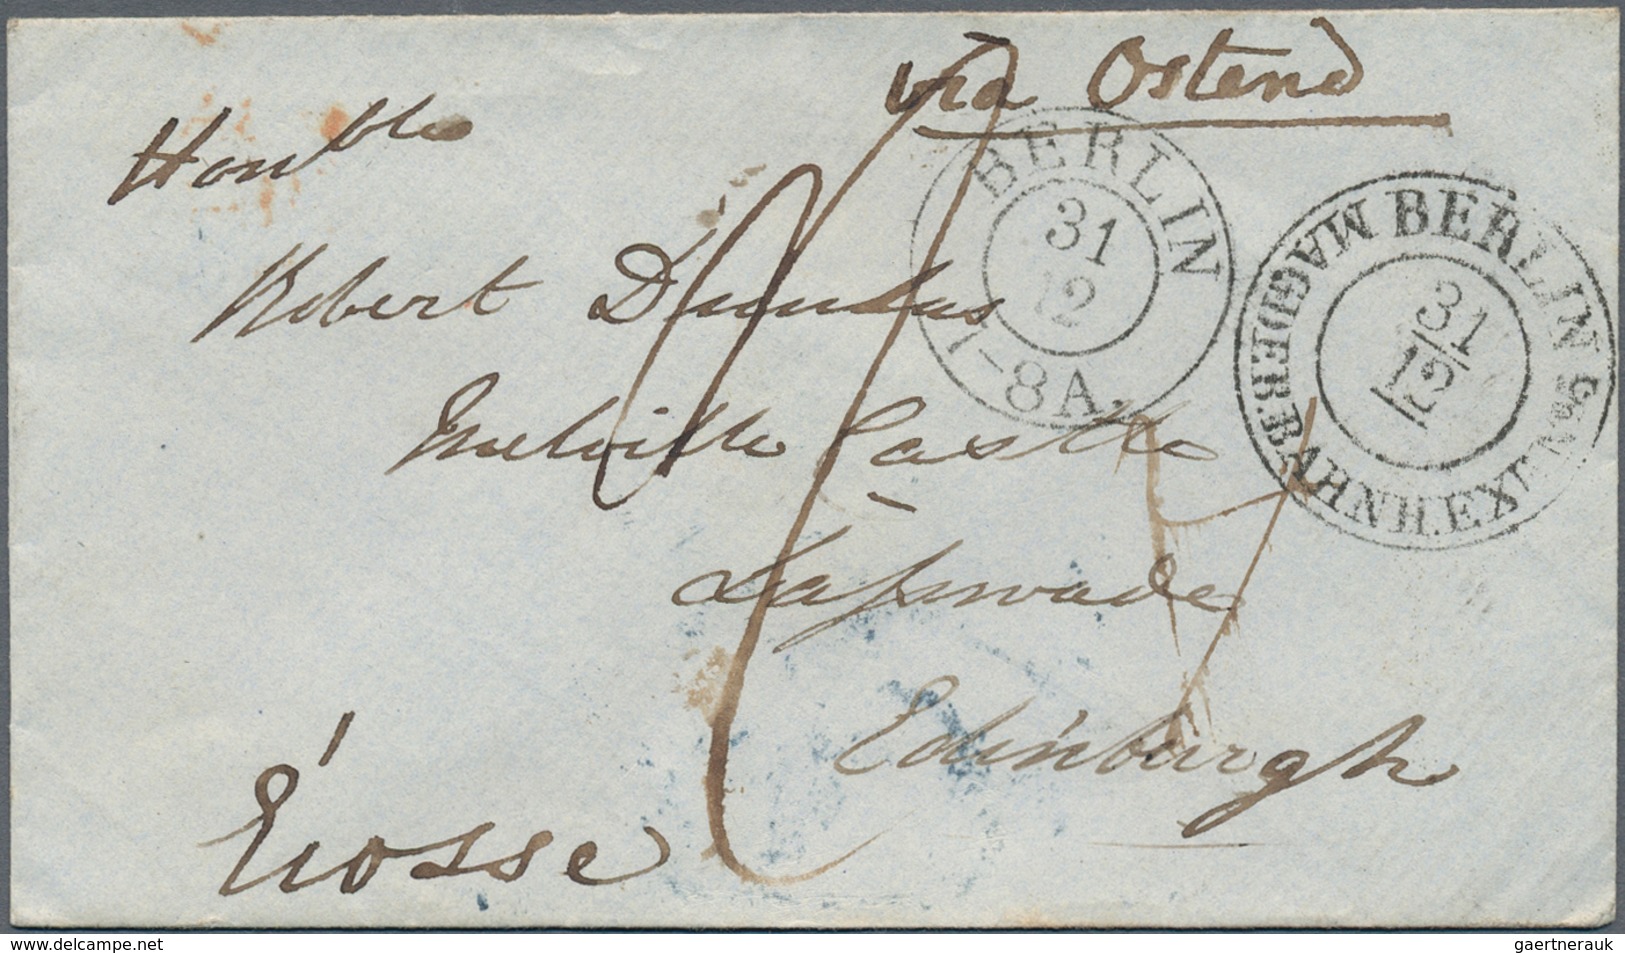 via Ostend
Honble
Robert Dundas
Melville Castle
Lasswade
Edinburgh
Écosse
BERLIN
31
12
7-8 A.
BERLIN
MAGDEB. BAHNH. EX
31
12
www.delcampe.net
gaertnerauk